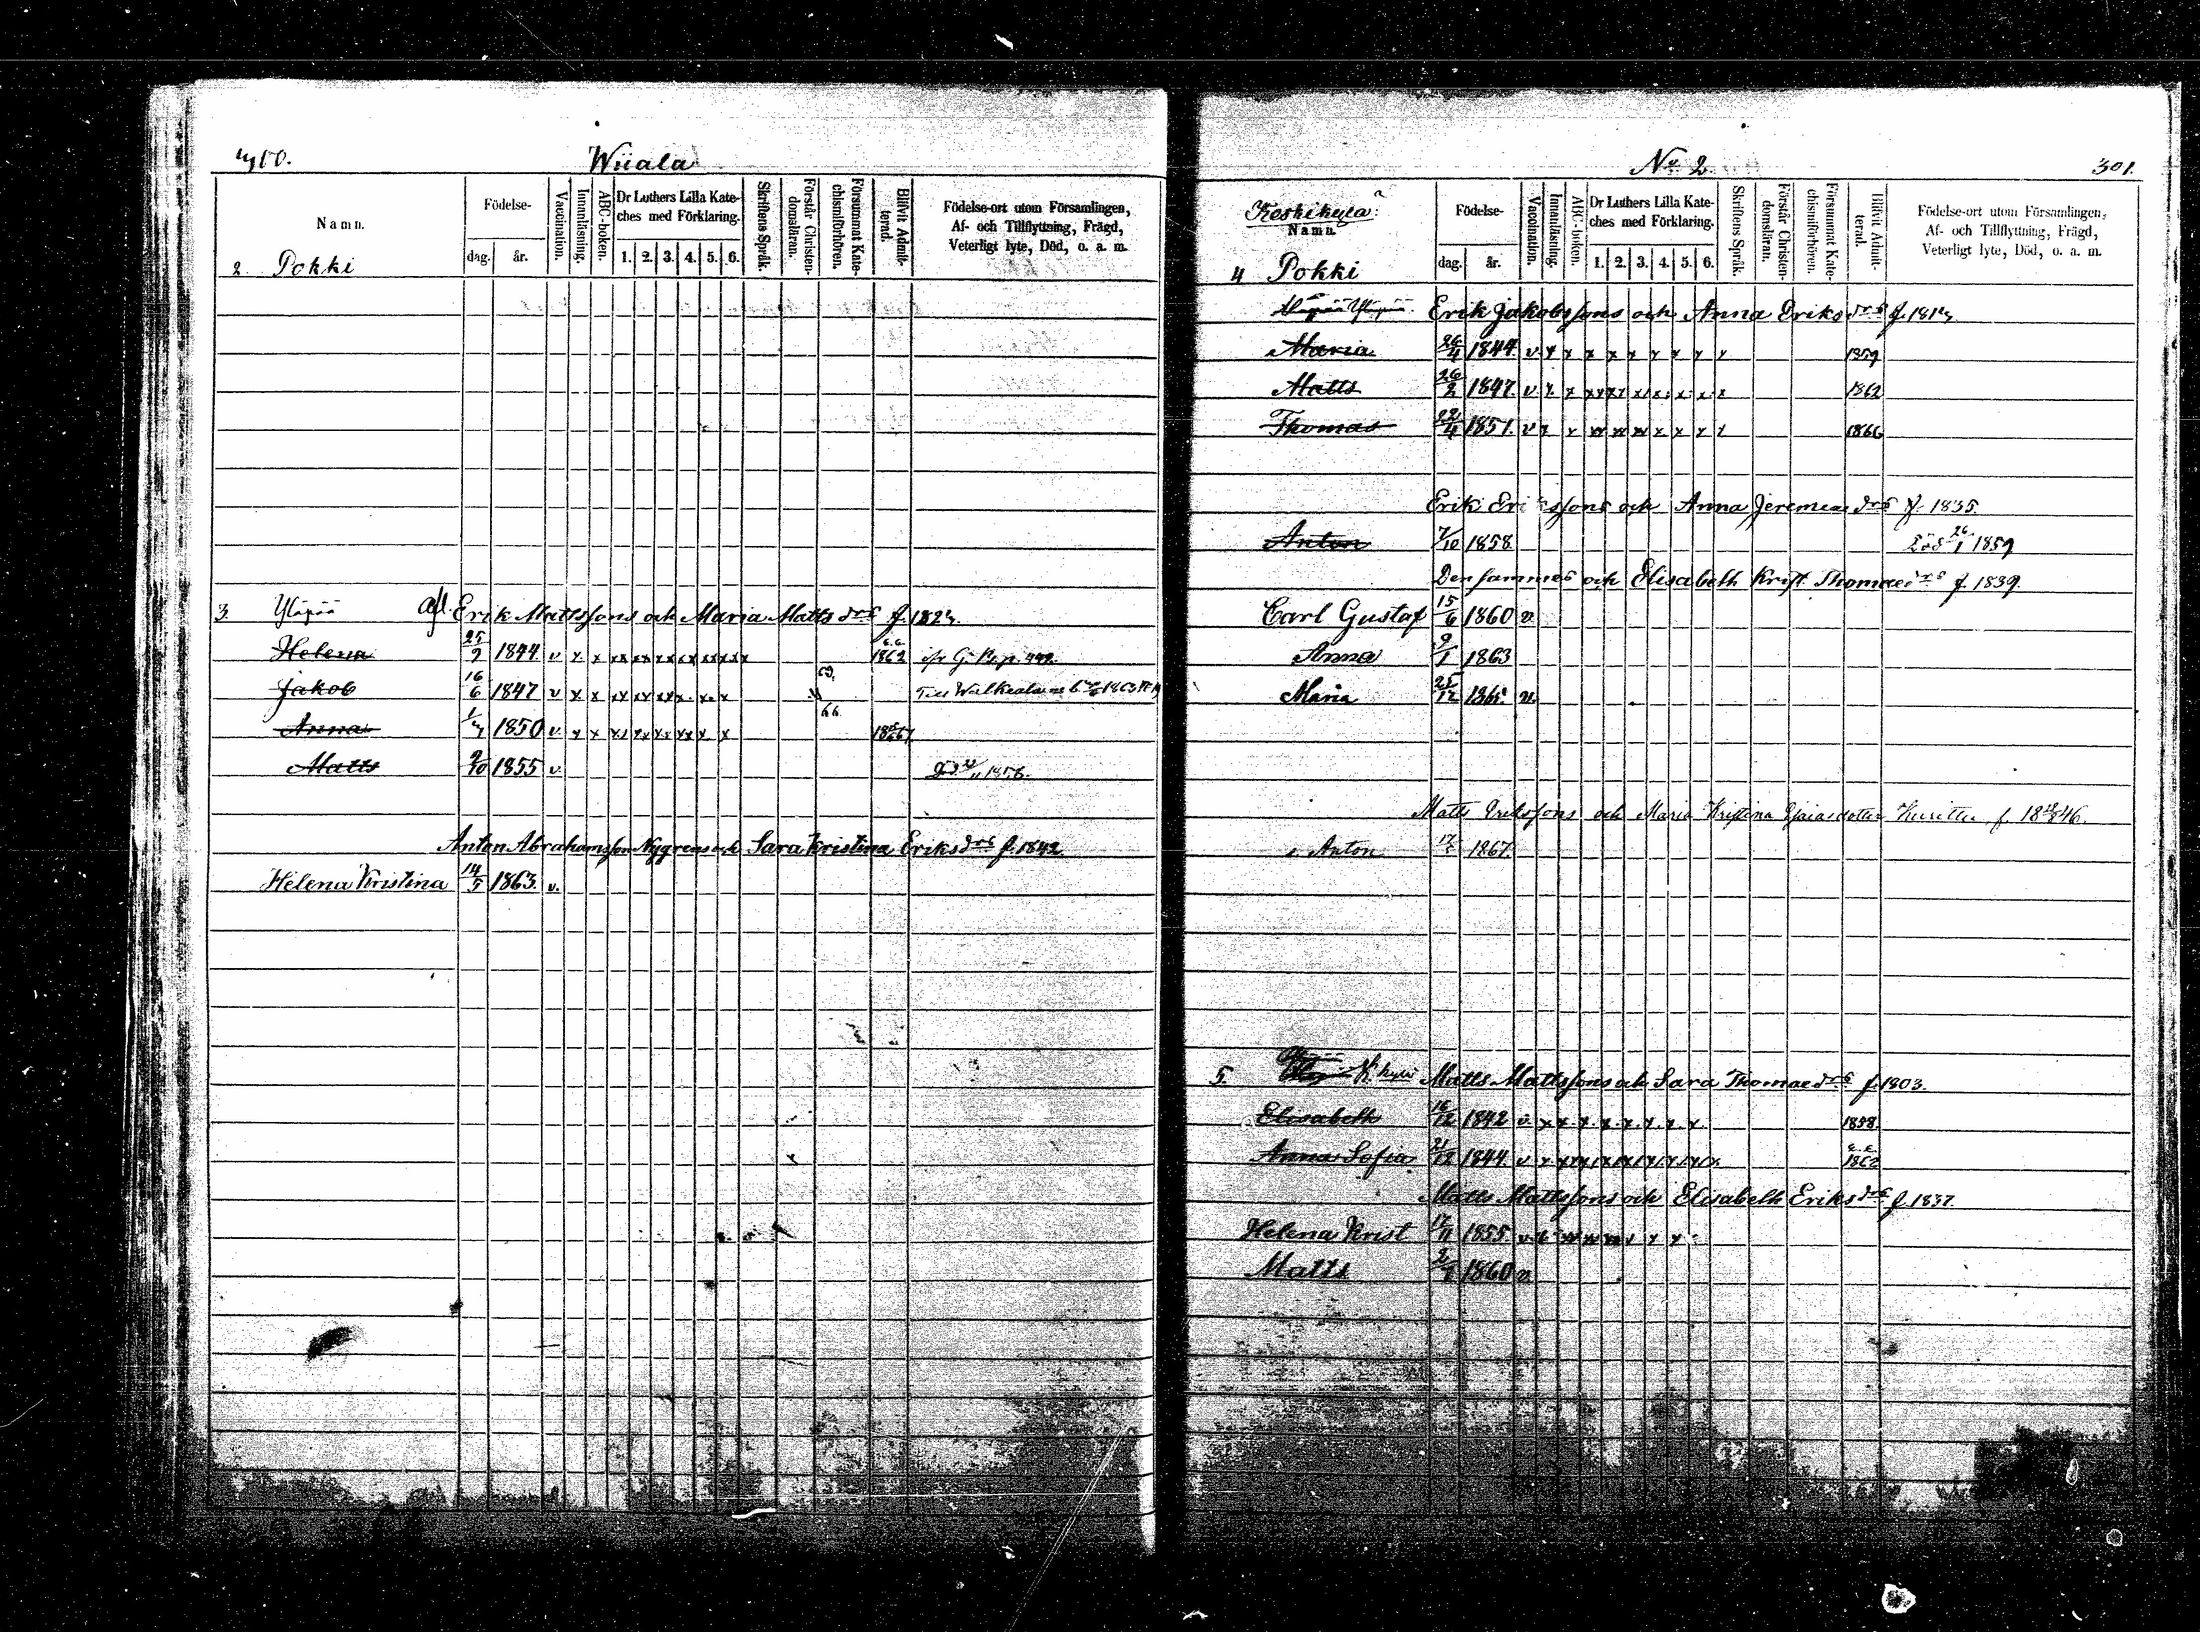 Wiiala
Namn.
Födelse-
dag. år.
Vaccination.
Innanläsning.
ABC-boken.
Dr Luthers Lilla Kate-
ches med Förklaring.
1. 2. 3. 4. 5. 6.
Skriftens Språk.
Förstår Christen-
domsläran.
Försummat Kate-
chismiförhören.
Blifvit Admit-
terad.
Födelse-ort utom Församlingen,
Af- och Tillflyttning, Frägd,
Veterligt lyte, Död, o. a. m.
2. Pokki
3. Ylipää Afl. Erik Mattssons och Maria Matts drs f.
Helena 25/9 1844 v x x xx xx xx xx xx xx 1862
Jakob 16/6 1847 v x x 63.
Anna 1850 v x x 66.
Matts 9/10 1855 v. 1856.
Anton Abrahamsson Nygrens och Sara Kristina Eriks drs f. 1842
Helena Kristina 14/5 1863. v.
No 2
301.
Keskikylä
Namn.
Födelse-
dag. år.
Vaccination.
Innanläsning.
ABC-boken.
Dr Luthers Lilla Kate-
ches med Förklaring.
1. 2. 3. 4. 5. 6.
Skriftens Språk.
Förstår Christen-
domsläran.
Försummat Kate-
chismiförhören.
Blifvit Admit-
terad.
Födelse-ort utom Församlingen,
Af- och Tillflyttning, Frägd,
Veterligt lyte, Död, o. a. m.
4 Pokki
Erik Jakobssons och Anna Eriks drs f.
Maria 26/4 1844 v x x x x x x x x x 1859
Matts 26/2 1847. v x x 1862
Thomas 22/4 1851. v x x xx xx xx x x x x 1866
Erik Erikssons och Anna Jeremias drs f. 1835.
Anton 7/10 1858 Död 26/1 1859
Densammes och Elisabeth Krist Thomae drs f. 1839.
Carl Gustaf 15/6 1860 v.
Anna 9/1 1863
Maria 25/12 1865. v.
Matts Erikssons och Maria Kristina f.
Anton 1867.
5. K. kylä Matts Mattssons och Sara Thomae drs f. 1803.
Elisabeth 16/12 1842 v x x x x x x x x 1858.
Anna Sofia 21/12 1844. v 1862
Matts Mattssons och Elisabeth Eriks drs f. 1837.
Helena Krist 17/11 1855 v
Matts 1860 v